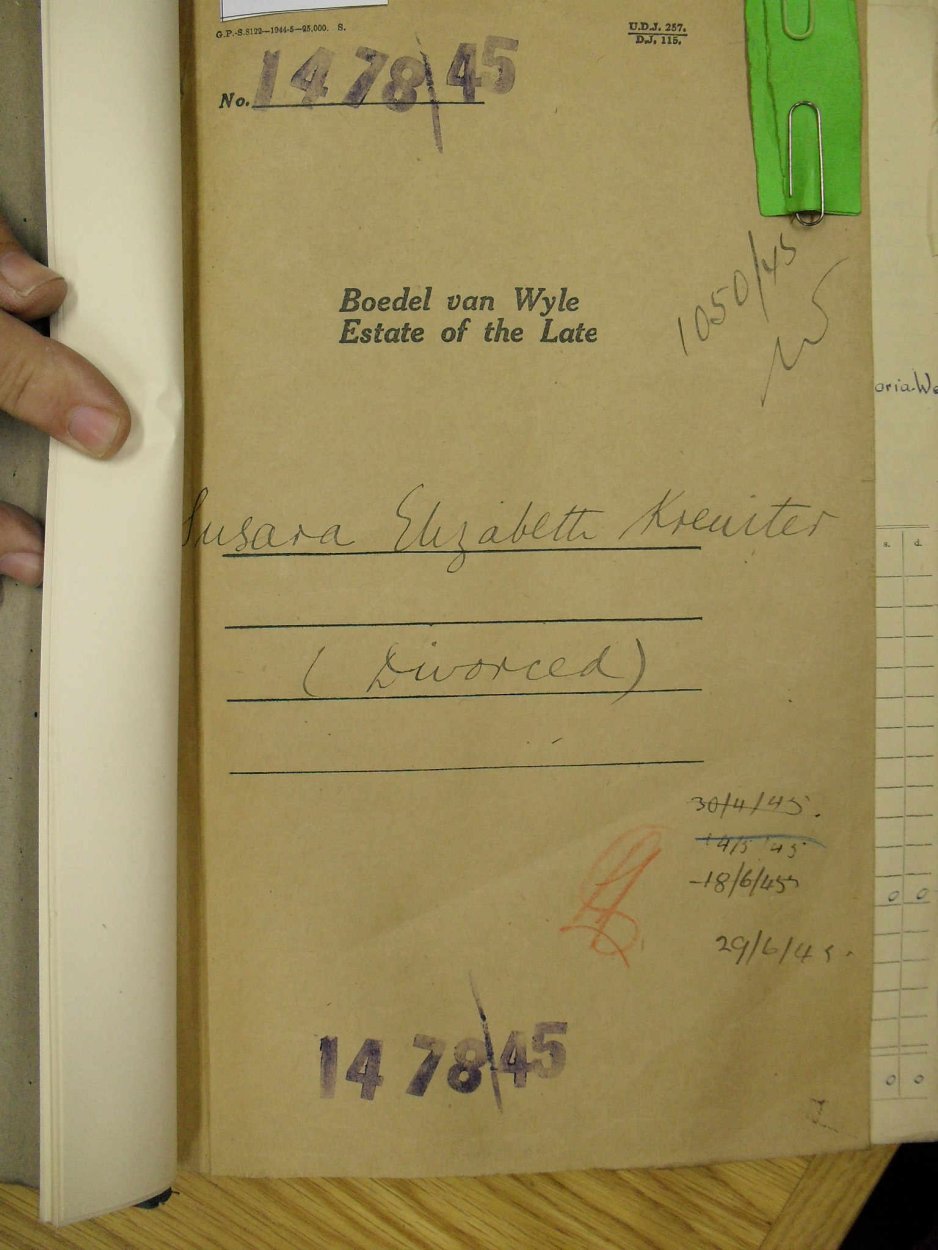 G.P.-S.8122—1944-5—25,000. S.
U.D.J. 257.
D.J. 115.
No. 1478/45
1050/45
Boedel van Wyle
Estate of the Late
oria-We
Susara Elizabeth Kreuiter
s. d.
(Divorced)
30/4/45.
14/5/45
18/6/45
0 0
29/6/45.
1478/45
0 0